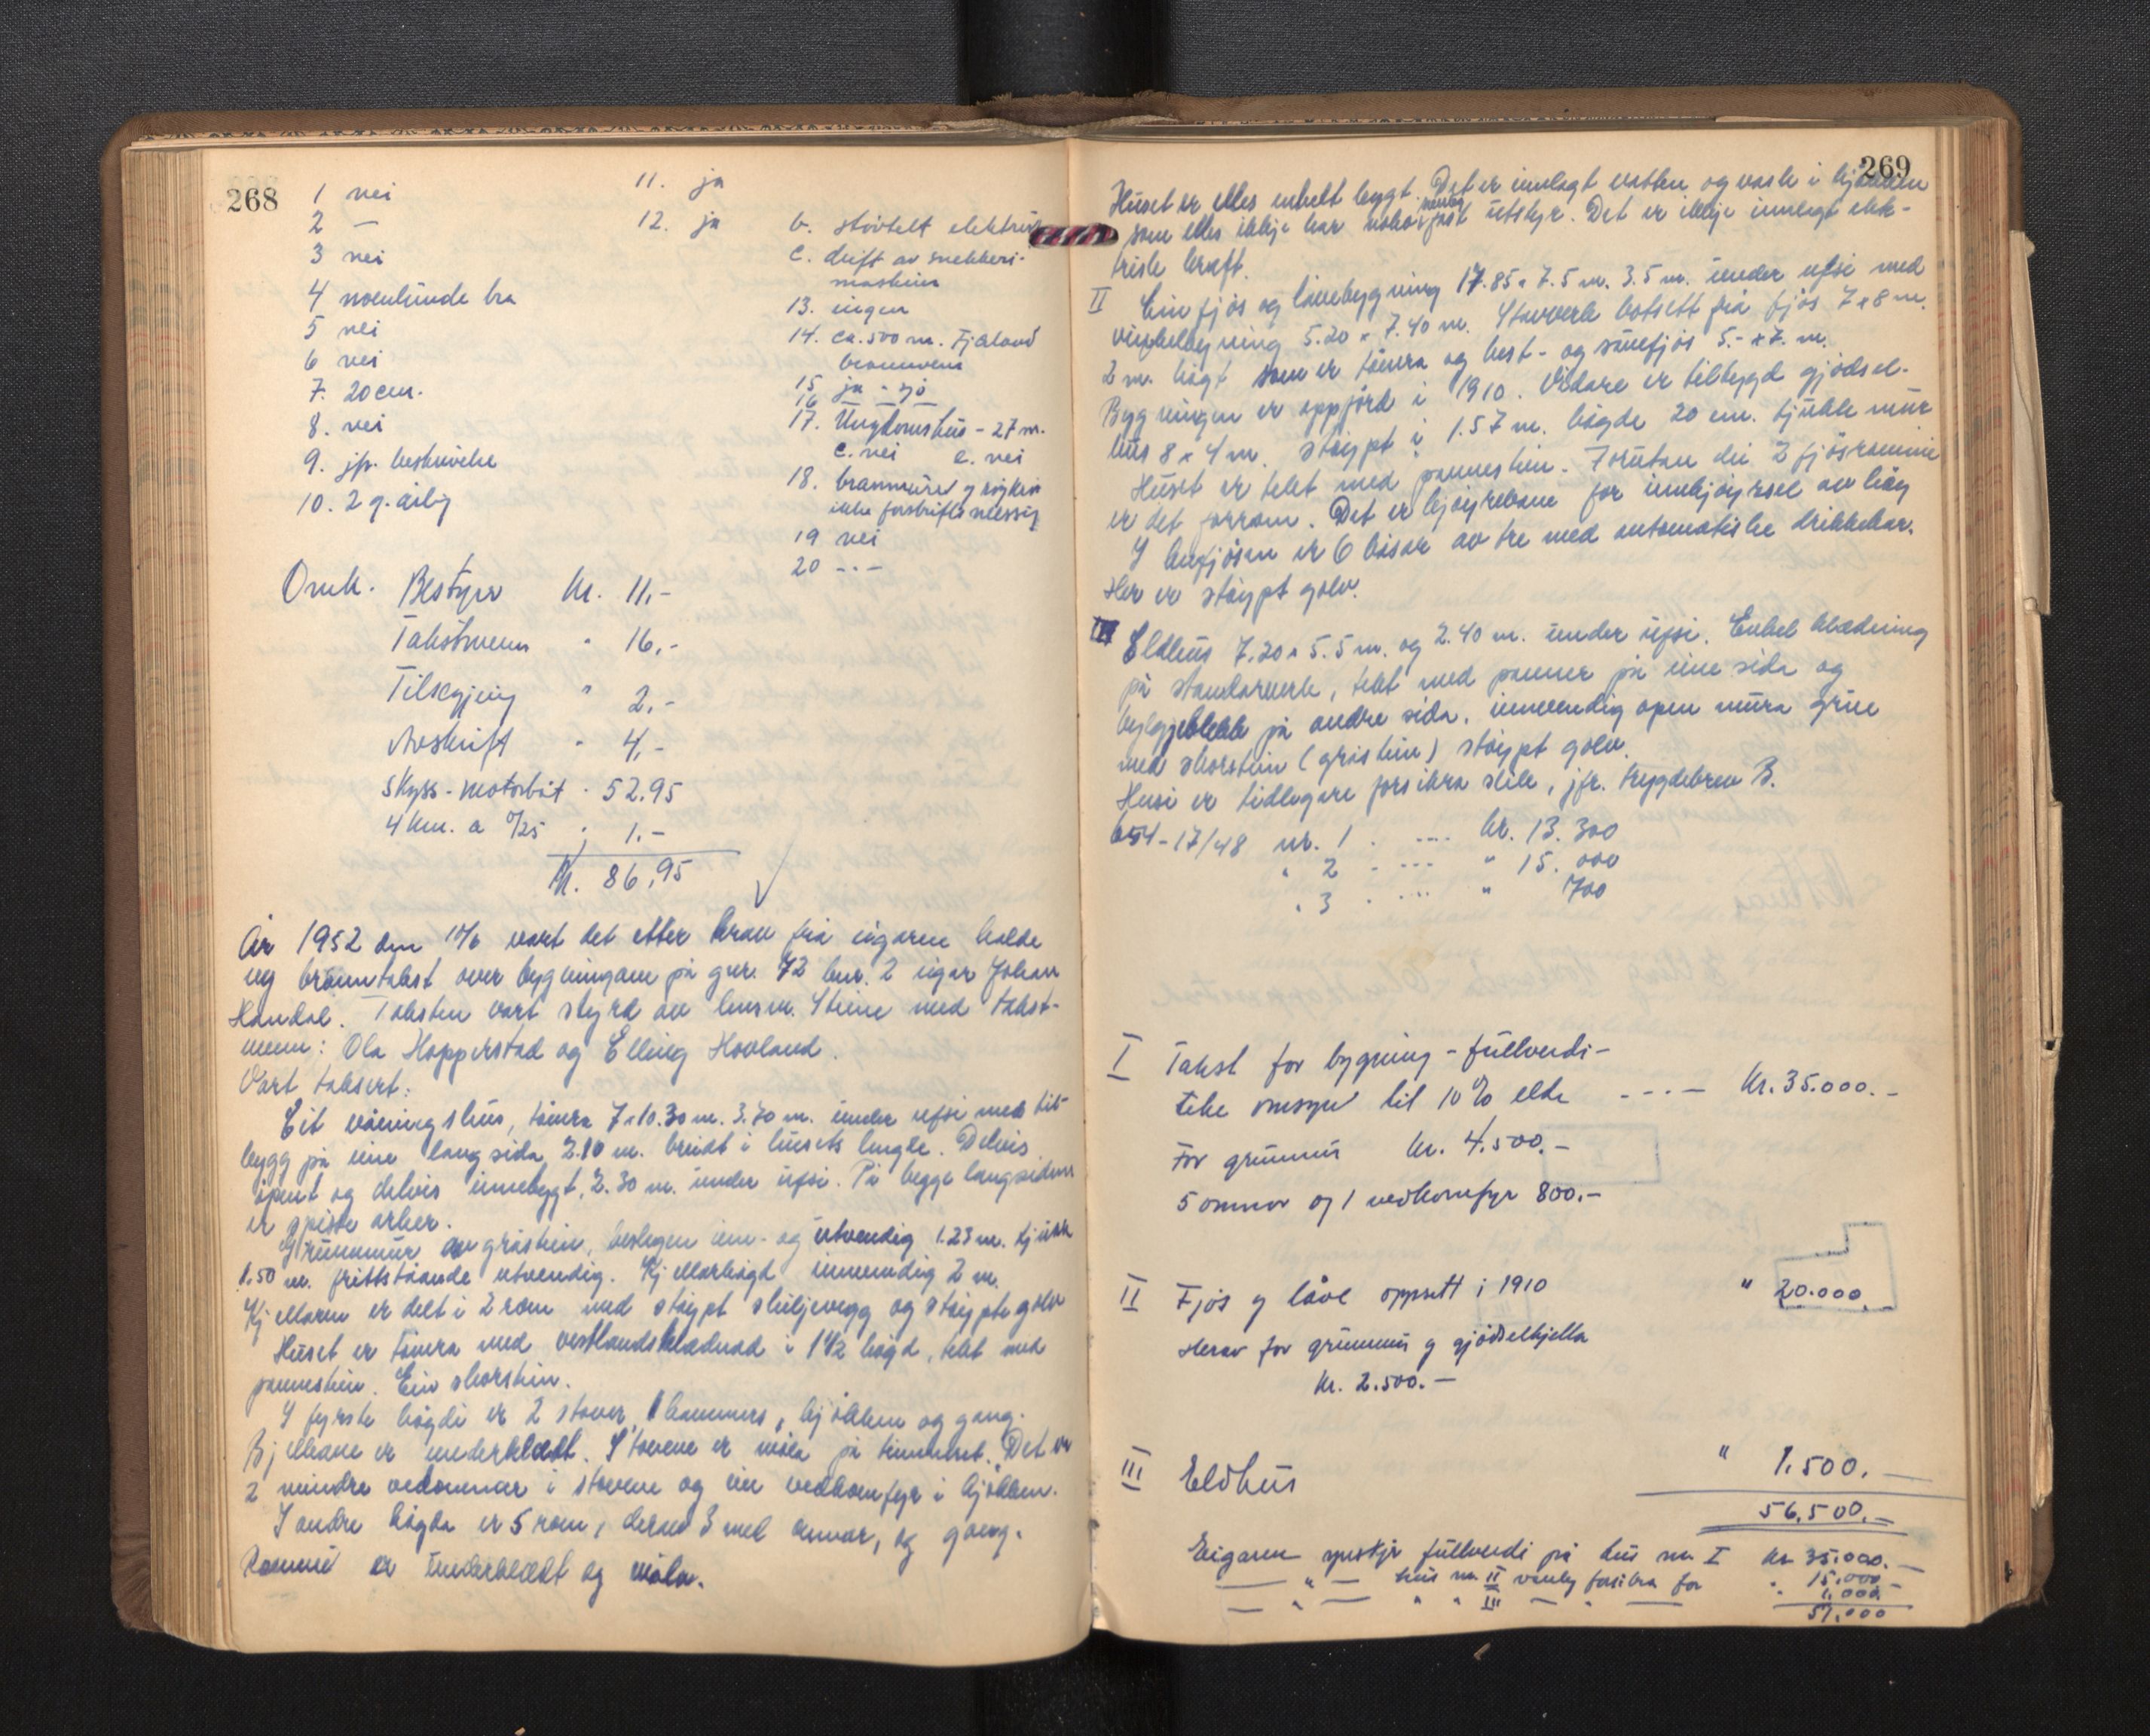 268
1 nei
2 —
3 nei
4 noenlunde bra
5 nei
6 nei
7. 20 cm.
8. nei
9. jfr. beskrivelse
10. 2 g. årlig
11. ja
12. ja b. støvtett elektrisk
c. drift av snekkeri-
maskin
13. ingen
14. ca. 500 m. Fjæland
brannvern
15 ja - sjø
16 — —
17. Ungdomshus - 27 m.
c. nei e. nei
18. brannmurer og røykrør
ikke forskriftsmessig
19 nei
20 -.-
Omk. Bestyrer kr. 11.-
Takstmenn " 16.-
Tilsegjing " 2.-
Avskrift " 4.-
Skyss - motorbåt " 52.95
4 km. a 0/25 " 1.-
Kr. 86.95
År 1952 den 10/6 vart det etter krav frå eigaren halde
ny branntakst over bygningane på gnr. 72 bnr. 2 eigar Johan
Handal. Taksten vart styrd av lensm. Steine med takst-
menn: Ola Hopperstad og Elling Hovland.
Vart taksert:
Eit våningshus, tømra 7 x 10.30 m. 3.70 m. under ufsi med til-
bygg på eine langsida 2.10 m. breidt i husets lengde. Delvis
åpent og delvis innebygt, 2.30 m. under ufsi. På begge langsidene
er spisse arker.
Grunnmur av gråstein, beslegen inn- og utvendig 1.23 m. tjukk
1.50 m. frittståande utvendig. Kjellarhøgd innvendig 2 m.
Kjellaren er delt i 2 rom med støypt skiljevegg og støypte golv
Huset er tømra med vestlandsklednad i 1 1/2 høgd, tekt med
pannestein. Ein skorstein.
I fyrste høgdi er 2 stover, 1 kammers, kjøkken og gang.
Bjelkane er underkledt. Stovene er måla på tømmeret. Det er
2 mindre vedomnar i stovene og ein vedkomfyr i kjøkken.
I andre høgda er 5 rom, derav 3 med omnar, og gang.
Rommi er underkledt og måla.
269
Huset er elles enkelt bygt. Det er innlagt vatten og vask i kjøkken
som elles ikkje har noko særleg fast utstyr. Det er ikkje innlagt elek-
trisk kraft.
II Ein fjøs og løebygning 17.85 x 7.5 m. 3.5 m. under ufsi med
vinkelbygning 5.20 x 7.40 m. Stavverk bortsett frå fjøs 7 x 8 m.
2 m. høgt som er tømra og hest- og sauefjøs 5.- x 7. m.
Bygningen er oppførd i 1910. Vidare er tilbygd gjødsel-
hus 8 x 4 m. støypt i 1.57 m. høgde 20 cm. tjukke mur
Huset er tekt med pannestein. Forutan dei 2 fjøsrommi
er det forrom. Det er køyrebane for innkjøyrsel av høy
I kufjøsen er 6 båsar av tre med automatiske drikkekar.
Her er støypt golv.
III Eldhus 7.20 x 5.5 m. og 2.40 m. under ufsi. Enkel klædning
på standarverk, tekt med panner på eine sida og
bylgjeblekk på andre sida, innvendig open mura grue
med skorstein (gråstein) støypt golv.
Husi er tidlegare forsikra slik, jfr. trygdebrev B.
654-17/48 nr. 1 . .... kr. 13.300
" 2 . ... " 15.000
" 3 . ... " 700
I Takst for bygning - fullverdi -
ikke omsyn til 10% elde ---- Kr. 35.000.-
For grunnmur kr. 4.500.-
5 omnar og 1 vedkomfyr 800.-
II Fjøs og låve oppsett i 1910 " 20.000.
Herav for grunnmur og gjødselkjella
kr. 2.500.-
III Eldhus " 1.500.-
56.500.-
Eigaren ynskjer fullverdi på hus nr. I kr 35.000.-
— " — hus nr. II vanleg forsikra for " 15.000.-
— " — " " III — " — 1.000.
51.000